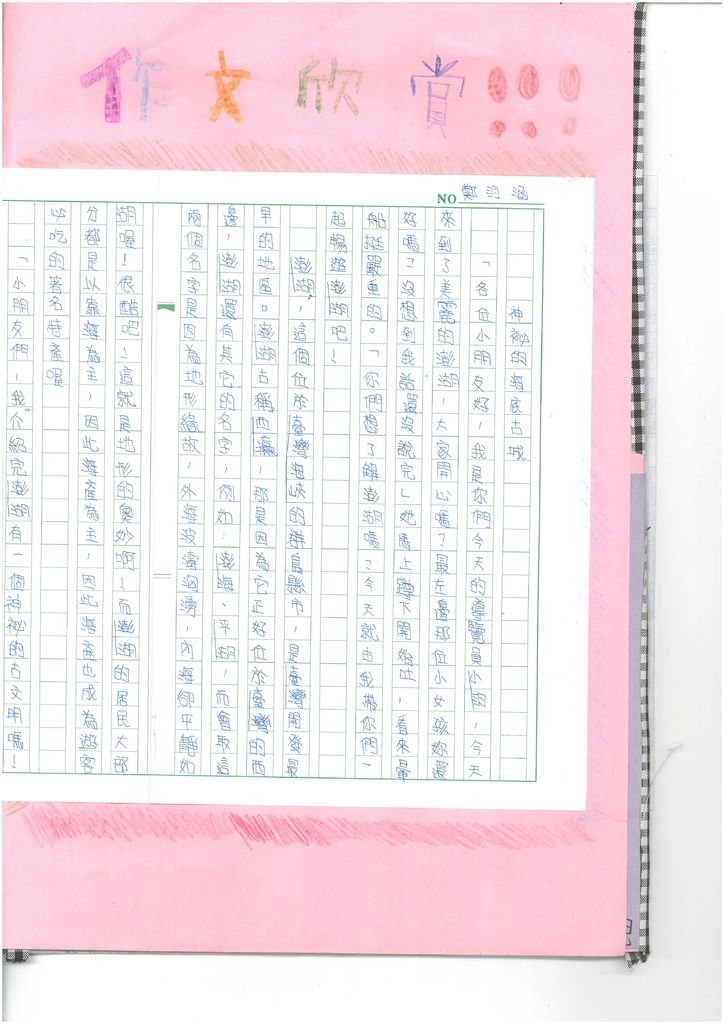 作文欣賞!!!
NO 鄭羽涵
神祕的海底古城
「各位小朋友好，我是你們今天的導覽員小明，今天
來到了美麗的澎湖，大家開心嗎？最左邊那位小女孩妳還
好嗎？沒想到我話還沒說完」她馬上蹲下開始吐，看來暈
船挺嚴重的。「你們想了解澎湖嗎？今天就由我帶你們一
起暢遊澎湖吧！
澎湖，這個位於臺灣海峽的群島縣市，是臺灣開發最
早的地區。澎湖古稱西瀛，那是因為它正好位於臺灣的西
邊，澎湖還有其它的名字，例如：澎海、平湖，而會取這
兩個名字是因為地形緣故，外海波濤洶湧，內海卻平靜如
湖喔！很酷吧！這就是地形的奧妙啊！而澎湖的居民大部
分都是以靠海為主，因此海產為主，因此海產也成為遊客
必吃的著名特產喔
「小朋友們！我介紹完澎湖有一個神祕的古文明嗎！